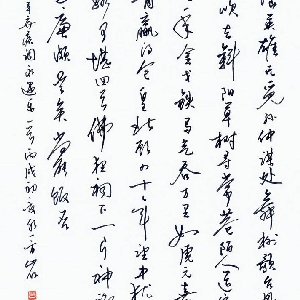 英雄无觅孙仲谋处舞榭歌台风
吹去斜阳草树寻常巷陌人道寄
年金戈铁马气吞万里如虎元嘉
胥赢得仓皇北顾四十三年望中犹
路可堪回首佛狸祠下一片神鸦
廉颇老矣尚能饭否
辛弃疾词永遇乐一首丙戌初夏